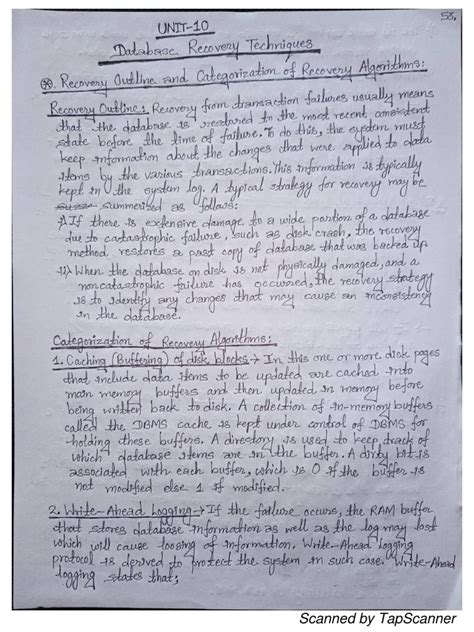 53.
UNIT-10
Database Recovery Techniques
Recovery Outline and Categorization of Recovery Algorithms:
Recovery Outline: Recovery from transaction failures usually means
that the database is restored to the most recent consistent
state before the time of failure. To do this, the system must
keep information about the changes that were applied to data
items by the various transactions. This information is typically
kept in the system log. A typical strategy for recovery may be
summarized as follows:
i) If there is extensive damage to a wide portion of a database
due to catastrophic failure, such as disk crash, the recovery
method restores a past copy of database that was backed up.
ii) When the database on disk is not physically damaged, and a
noncatastrophic failure has occurred, the recovery strategy
is to identify any changes that may cause an inconsistency
in the database.
Categorization of Recovery Algorithms:
1. Caching (Buffering) of disk blocks → In this one or more disk pages
that include data items to be updated are cached into
main memory buffers and then updated in memory before
being written back to disk. A collection of in-memory buffers
called the DBMS cache is kept under control of DBMS for
holding these buffers. A directory is used to keep track of
which database items are in the buffer. A dirty bit is
associated with each buffer, which is 0 if the buffer is
not modified else 1 if modified.
2. Write-Ahead Logging → If the failure occurs, the RAM buffer
that stores database information as well as the log may lost
which will cause loosing of information. Write-Ahead Logging
protocol is derived to protect the system in such case. Write-Ahead
logging states that;
Scanned by TapScanner